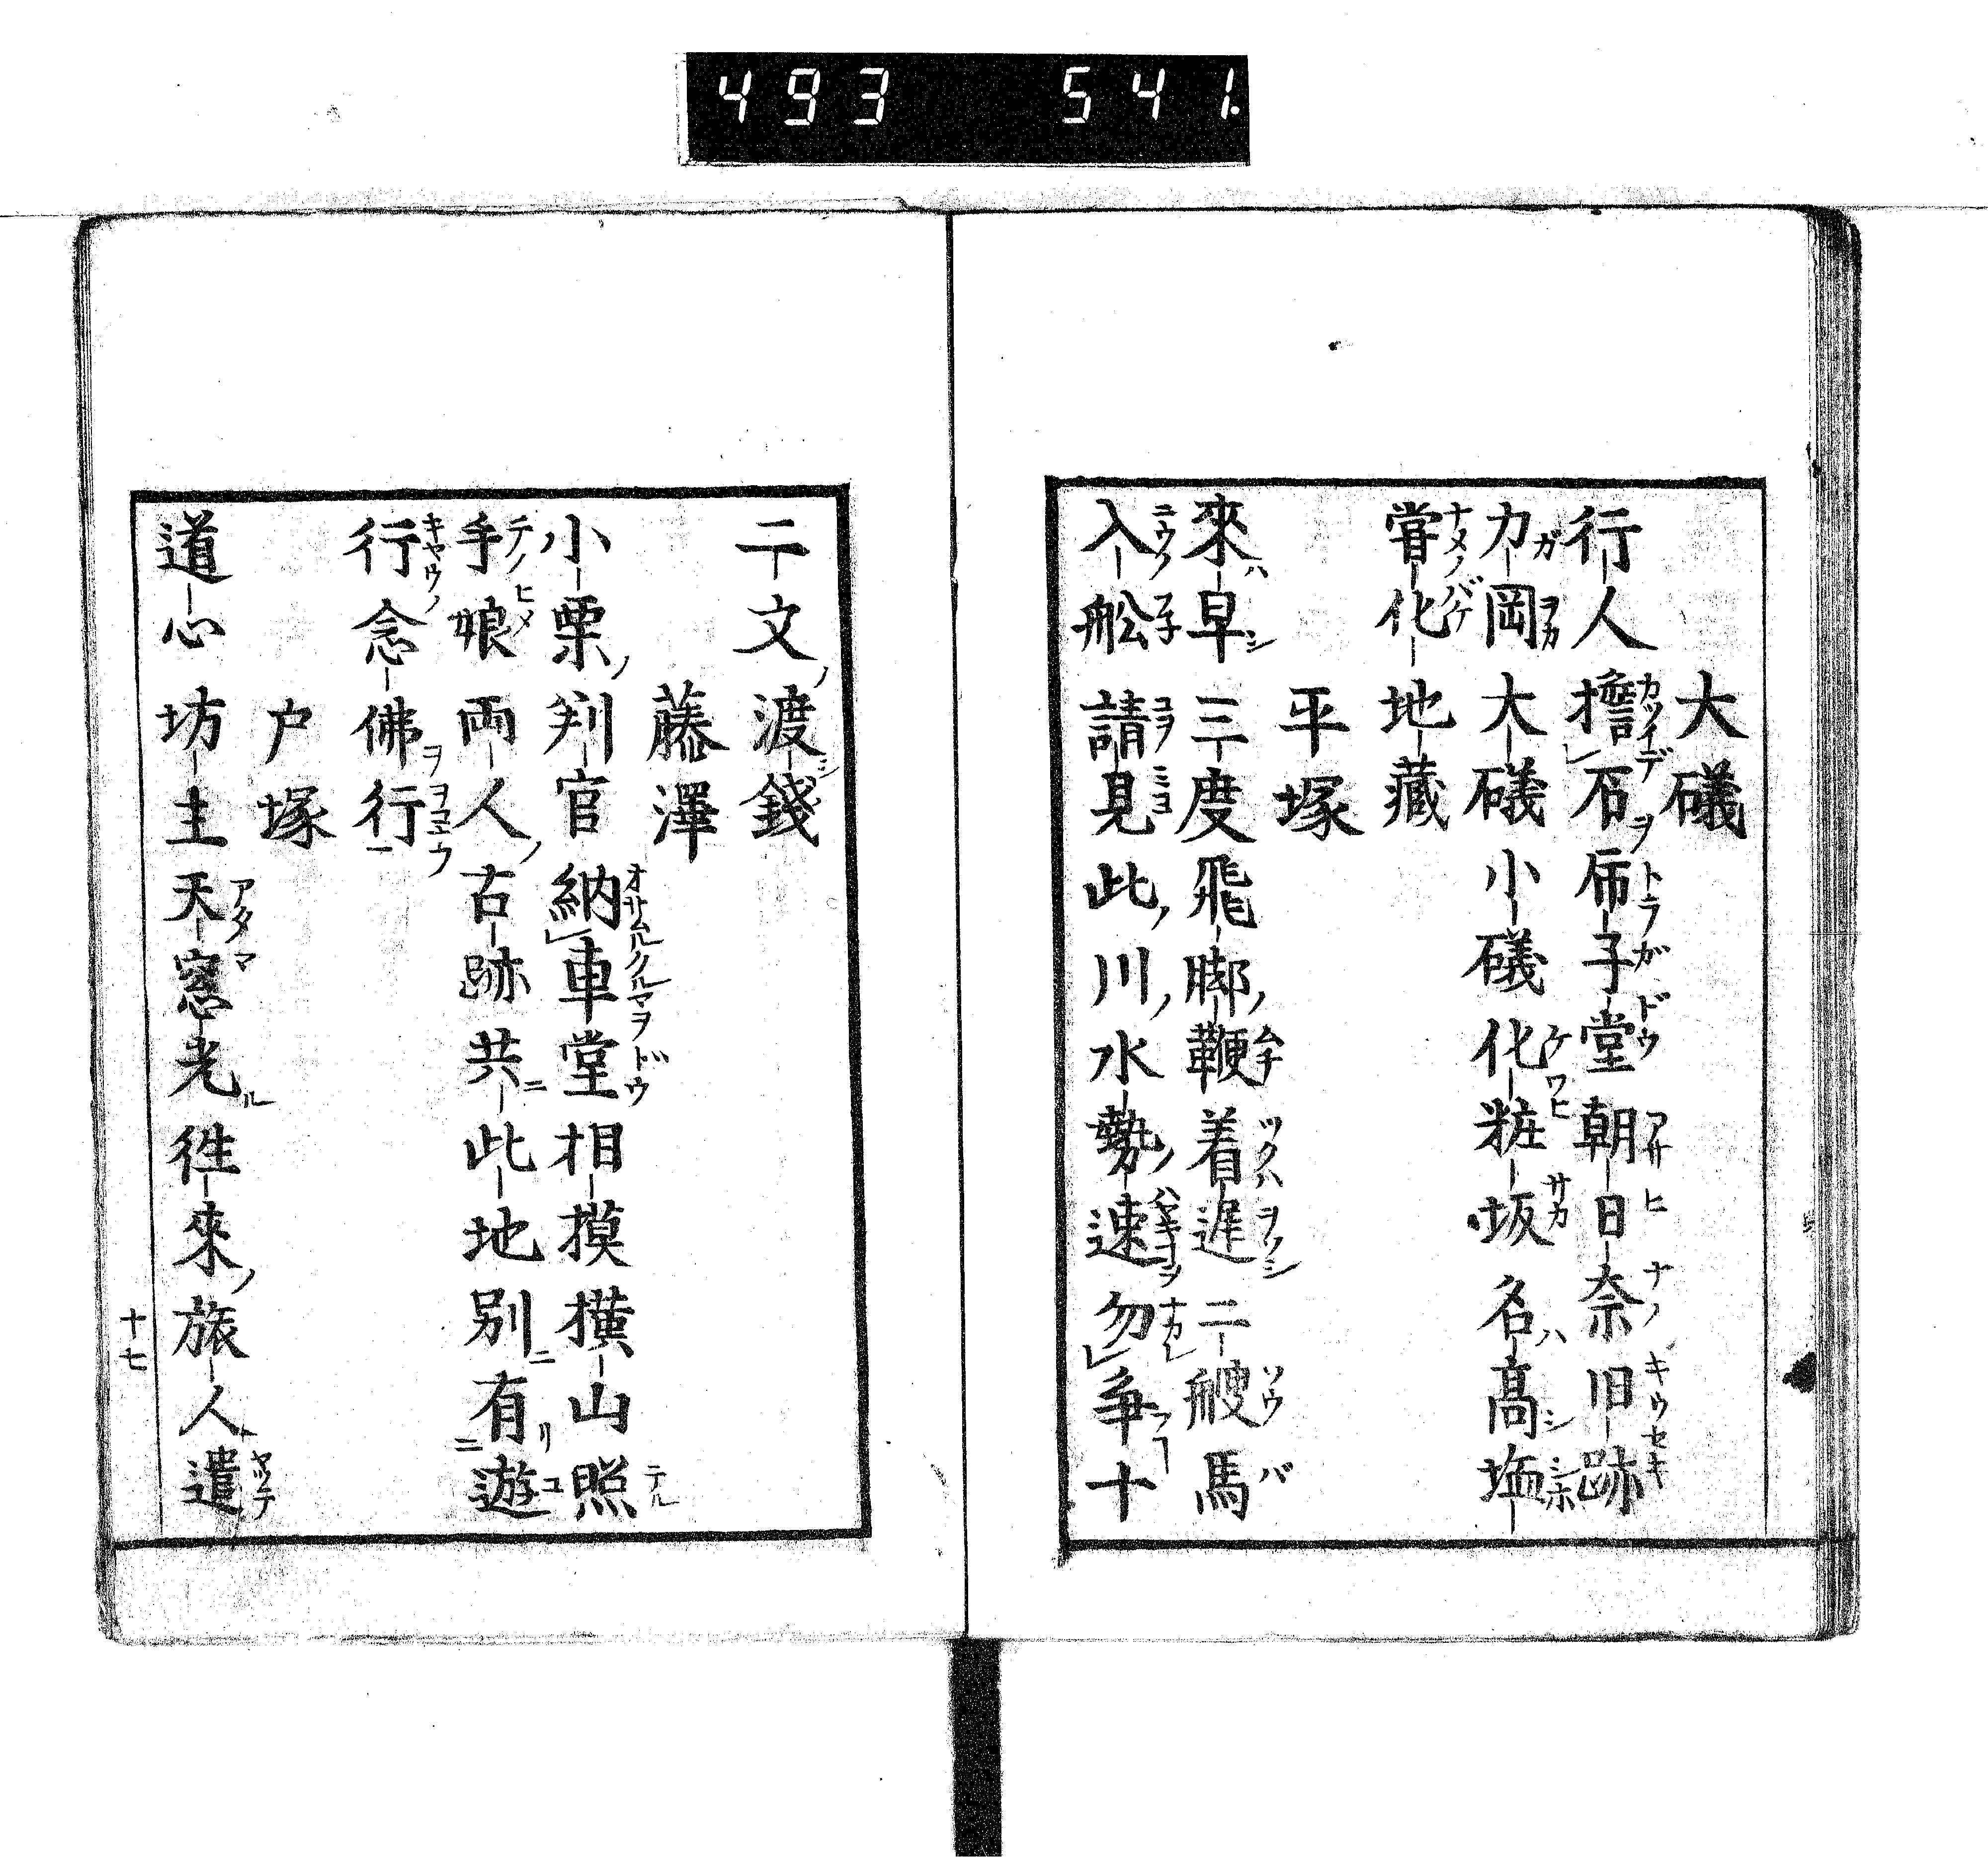 493 541.
大礒
行人擔石乕子堂朝日奈旧跡
力岡大礒小礒化粧坂名髙塩
甞化地藏
平塚
來早三度飛脚鞭着遅二艘馬
入舩請見此川水勢速勿爭十
二文渡錢
藤澤
小栗判官納車堂相摸横山照
手娘両人古跡共此地別有遊
行念佛行
戸塚
道心坊主天窓光徃來旅人遣
十七